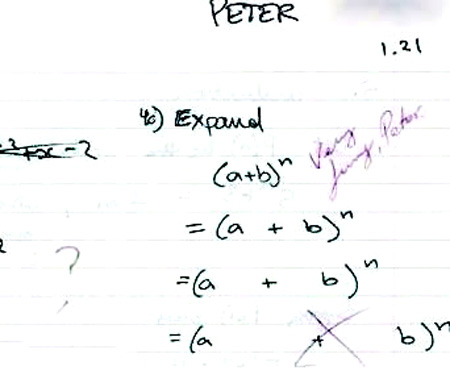 PETER
1.21
4c) Expand
(a+b)ⁿ
Very funny, Peter
= (a + b)ⁿ
?
= (a + b)ⁿ
= (a + b)ⁿ